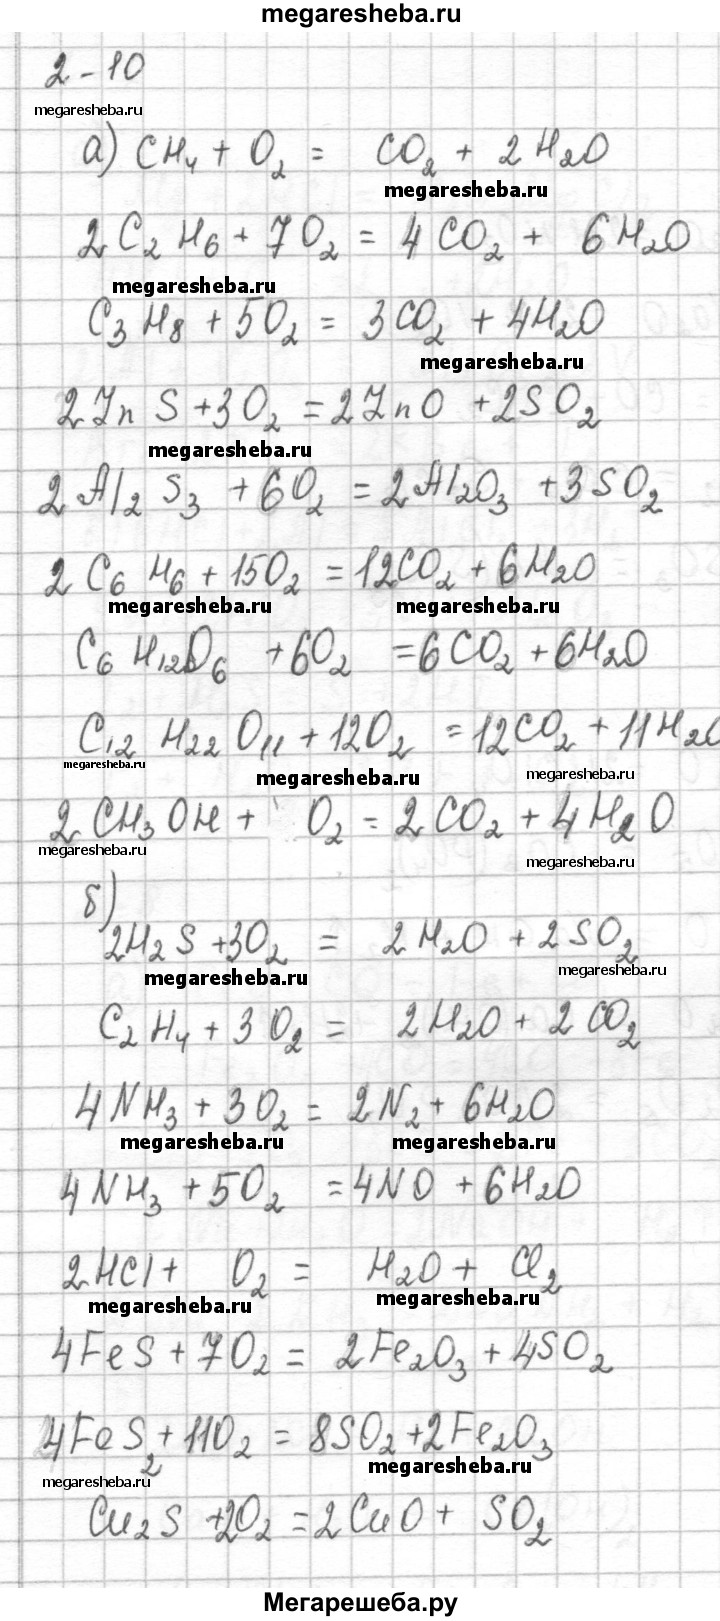 megaresheba.ru
2-10
megaresheba.ru
а) CH₄ + O₂ = CO₂ + 2H₂O
megaresheba.ru
2C₂H₆ + 7O₂ = 4CO₂ + 6H₂O
megaresheba.ru
C₃H₈ + 5O₂ = 3CO₂ + 4H₂O
megaresheba.ru
2ZnS + 3O₂ = 2ZnO + 2SO₂
megaresheba.ru
2Al₂S₃ + 6O₂ = 2Al₂O₃ + 3SO₂
2C₆H₆ + 15O₂ = 12CO₂ + 6H₂O
megaresheba.ru megaresheba.ru
C₆H₁₂O₆ + 6O₂ = 6CO₂ + 6H₂O
C₁₂H₂₂O₁₁ + 12O₂ = 12CO₂ + 11H₂O
megaresheba.ru megaresheba.ru megaresheba.ru
2CH₃OH + O₂ = 2CO₂ + 4H₂O
megaresheba.ru megaresheba.ru
б)
2H₂S + 3O₂ = 2H₂O + 2SO₂
megaresheba.ru megaresheba.ru
C₂H₄ + 3O₂ = 2H₂O + 2CO₂
4NH₃ + 3O₂ = 2N₂ + 6H₂O
megaresheba.ru megaresheba.ru
4NH₃ + 5O₂ = 4NO + 6H₂O
2HCl + O₂ = H₂O + Cl₂
megaresheba.ru megaresheba.ru
4FeS + 7O₂ = 2Fe₂O₃ + 4SO₂
4FeS₂ + 11O₂ = 8SO₂ + 2Fe₂O₃
megaresheba.ru megaresheba.ru
Cu₂S + 2O₂ = 2CuO + SO₂
Мегарешеба.ру